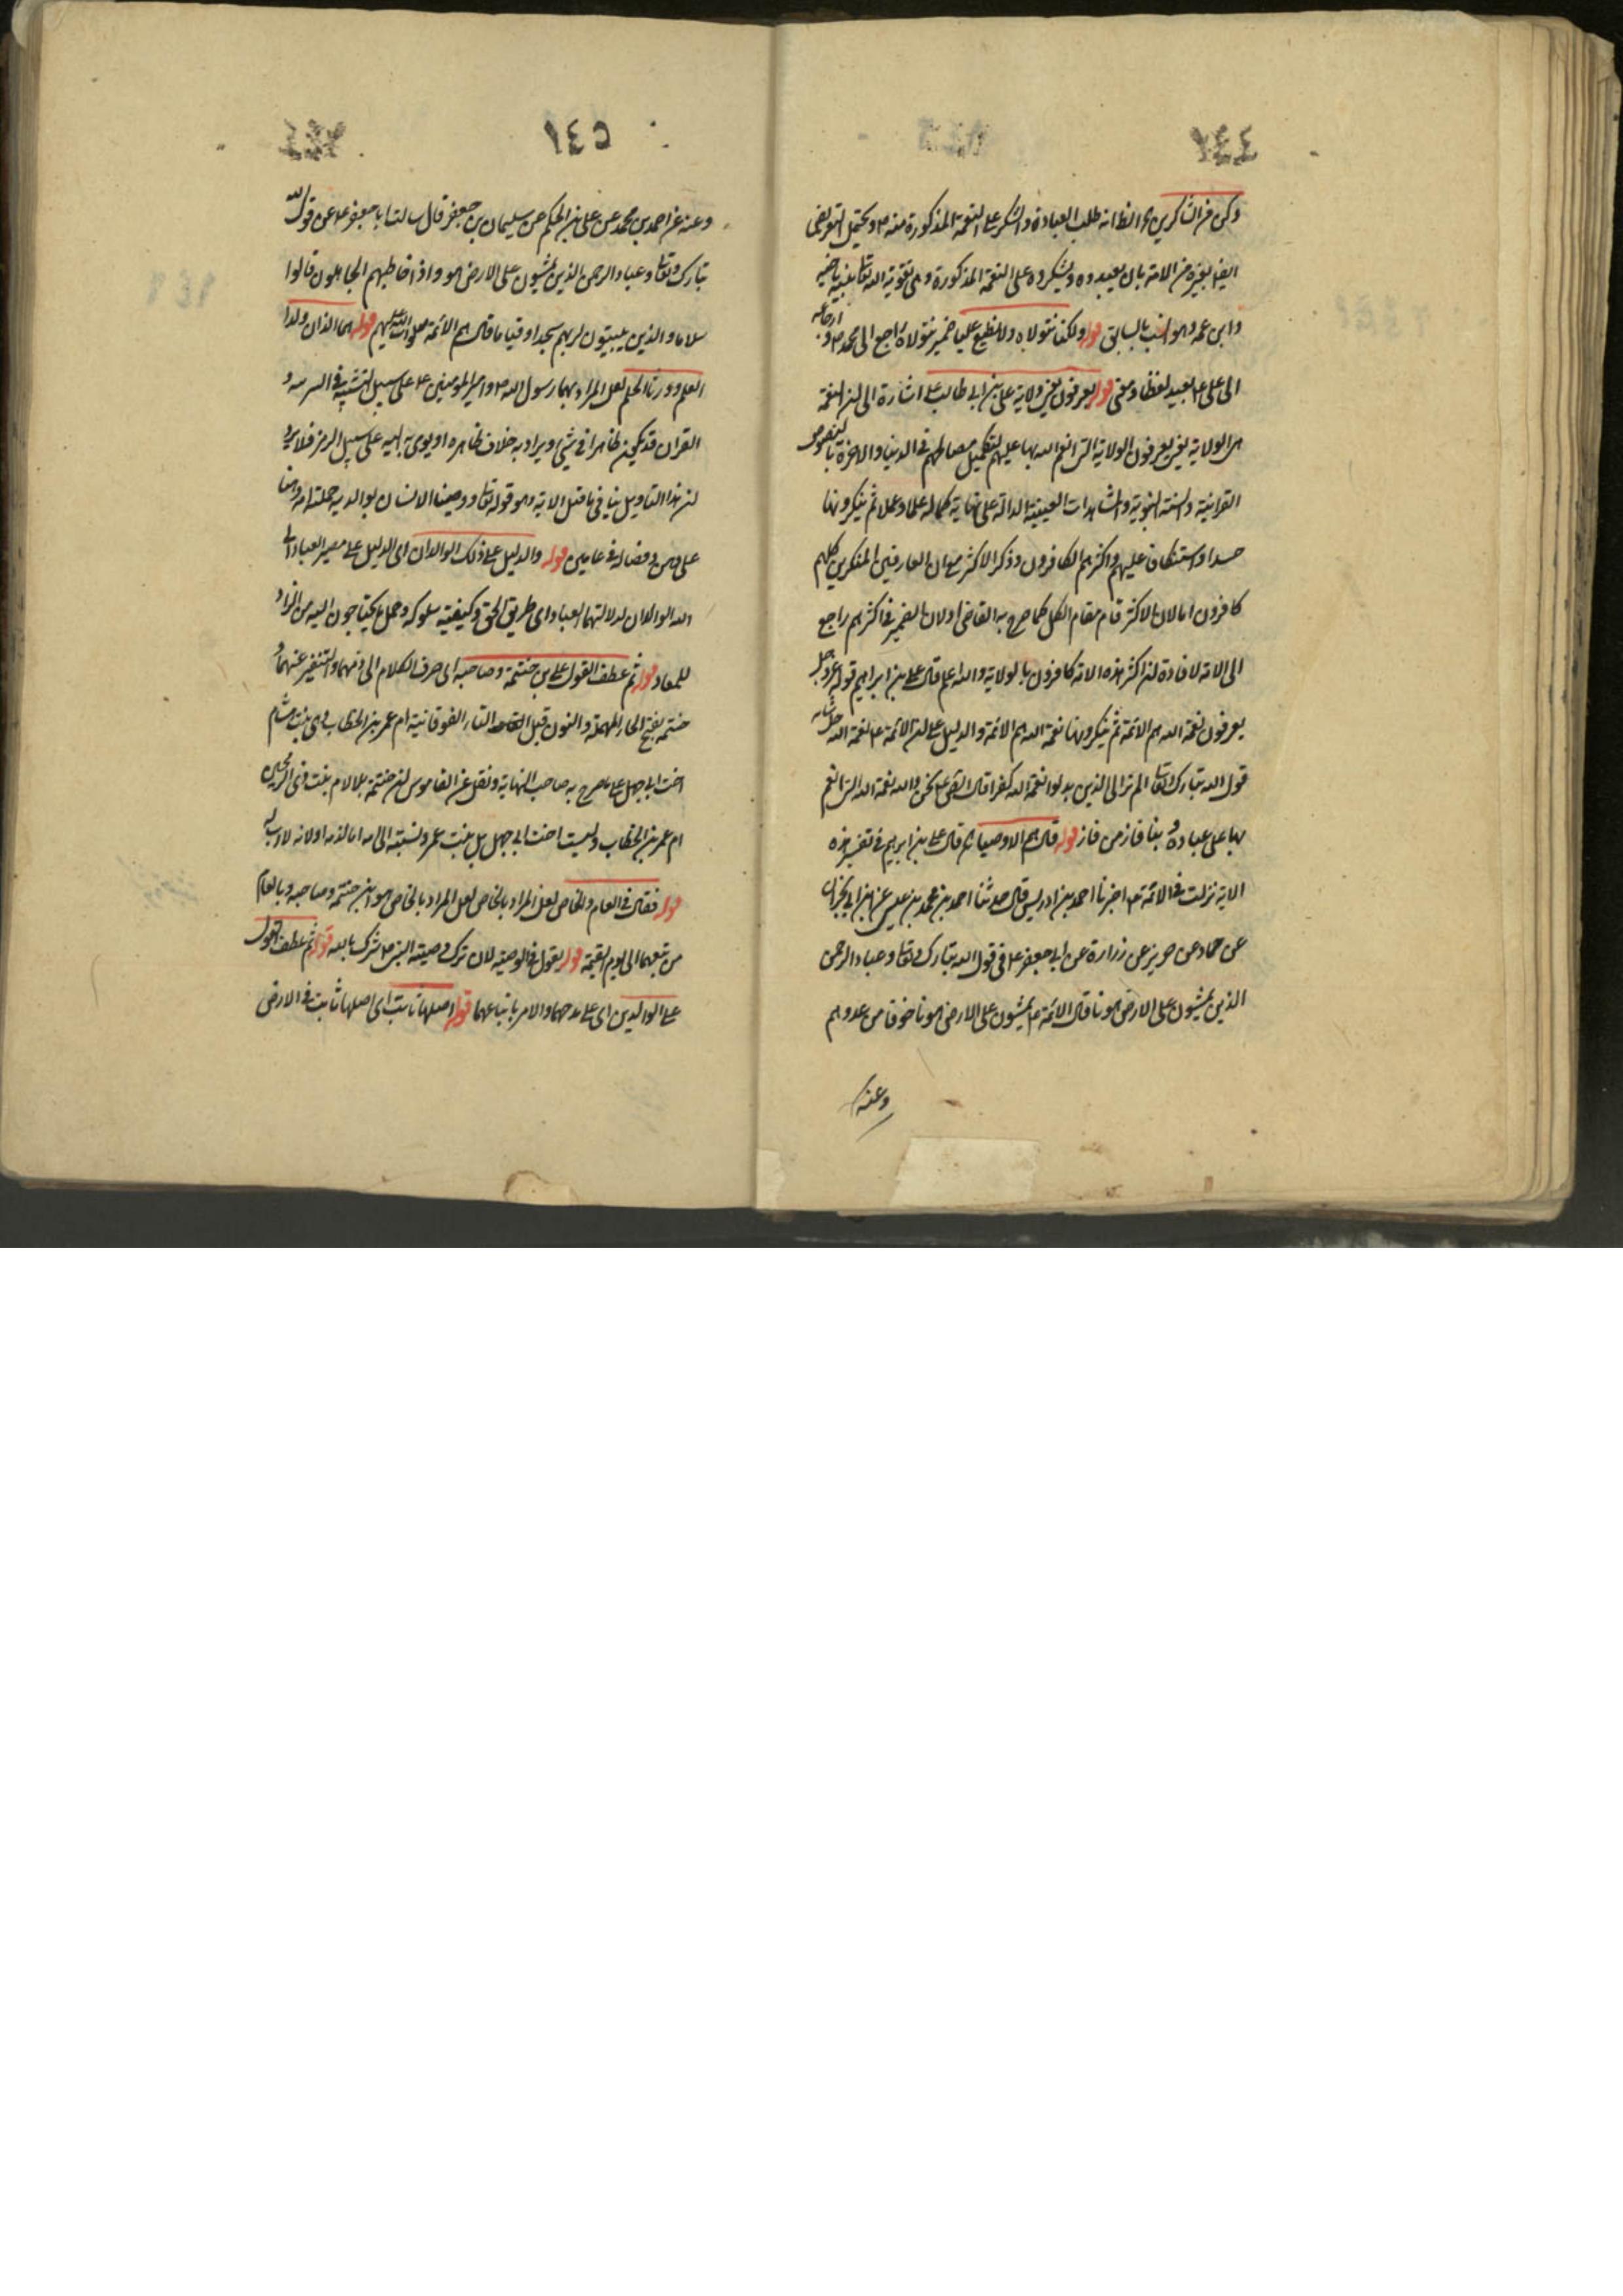 ٢٤٤
وكن من الشاكرين الظاهر انه طلب العبادة والشكر على النعمة المذكورة منه ص ويحتمل التعريض
ايضا بغيره من الامة بان يعبدوه ويشكروه على النعمة المذكورة وهي تقوية الله تعالى نبيه باخيه
وابن عمه وهو انسب بالسابق قوله ولكنا نتولاه ولا نطيع عليا ضمير نتولاه راجع الى محمد ص و ارجاعه
الى علي ع بعيد لفظا ومعنى قوله يعرفون يعني ولاية علي بن ابي طالب ع اشارة الى ان النعمة
هي الولاية يعني يعرفون الولاية التي انعم الله بها عليهم لتكميل مصالحهم في الدنيا والاخرة بالنصوص
القرآنية والسنة النبوية والمشاهدات العينية الدالة على نهاية كماله علما وعملا ثم ينكرونها
حسدا واستنكافا عليهم واكثرهم الكافرون وذكر الاكثر مع ان العارفين المنكرين كلهم
كافرون اما لان الاكثر قام مقام الكل كما صرح به القاضي او لان الضمير في اكثرهم راجع
الى الامة لافادة ان اكثر هذه الامة كافرون بالولاية والله اعلم قال علي بن ابراهيم قوله عز وجل
يعرفون نعمة الله هم الائمة ثم ينكرونها نعمة الله هم الائمة والدليل على ان الائمة ع نعمة الله جل شانه
قول الله تبارك وتعالى الم تر الى الذين بدلوا نعمة الله كفرا قال الصادق ع نحن والله نعمة الله التي انعم
بها على عباده وبنا فاز من فاز قوله قال هم الاوصياء قال علي بن ابراهيم في تفسير هذه
الاية نزلت في الائمة ع اخبرنا احمد بن ادريس قال حدثنا احمد بن محمد بن عيسى عن ابن ابي نجران
عن حماد عن حريز عن زرارة عن ابي جعفر ع في قول الله تبارك وتعالى وعباد الرحمن
الذين يمشون على الارض هونا قال الائمة ع يمشون على الارض هونا خوفا من عدوهم
وعنه
٢٤٥
وعنه عن احمد بن محمد عن علي بن الحكم عن سليمان بن جعفر قال سالت ابا جعفر ع عن قول الله
تبارك وتعالى وعباد الرحمن الذين يمشون على الارض هونا واذا خاطبهم الجاهلون قالوا
سلاما والذين يبيتون لربهم سجدا وقياما قال هم الائمة صلوات الله عليهم قوله هما اللذان ولدا
العلم وورثا الحكم لعل المراد بهما رسول الله ص وامير المؤمنين ع على سبيل التشبيه
القران قد يكون ظاهرا في شيء ويراد به خلاف ظاهره او يومى به اليه على سبيل الرمز فلا يرد
ان هذا التاويل ينافي ما قبل الاية وهو قوله تعالى ووصينا الانسان بوالديه حملته امه وهنا
على وهن وفصاله في عامين قوله والدليل على ذلك الوالدان اى الدليل على مصير العباد الى
الله الوالدان لدلالتهما العباد اى طريق الحق وكيفية سلوكه وحمل ما يحتاجون اليه من الزاد
للمعاد قوله ثم عطف القول على بن حنتمة وصاحبه اى صرف الكلام الى ذمهما والتنفير عنهما و
حنتمة بفتح الحاء المهملة والنون قبل التاء الفوقانية ام عمر بن الخطاب وهي بنت هشام
اخت ابي جهل على ما صرح به صاحب النهاية ونقل عن القاموس ان حنتمة بلا لام بنت ذى الرمحين
ام عمر بن الخطاب وليست اخت ابي جهل بل بنت عمه ونسبته الى امه اما لذمه او لانه لا اب له
قوله فقال في العام والخاص لعل المراد بالخاص هو ابن حنتمة وصاحبه وبالعام
من تبعهما الى يوم القيمة قوله يقول في الوصية لان ترك وصية النبي ص شرك بالله قوله ثم عطف القول
على الوالدين اى على مدحهما والامر باتباعهما قوله اصلها ثابت اى اصلها ثابت في الارض